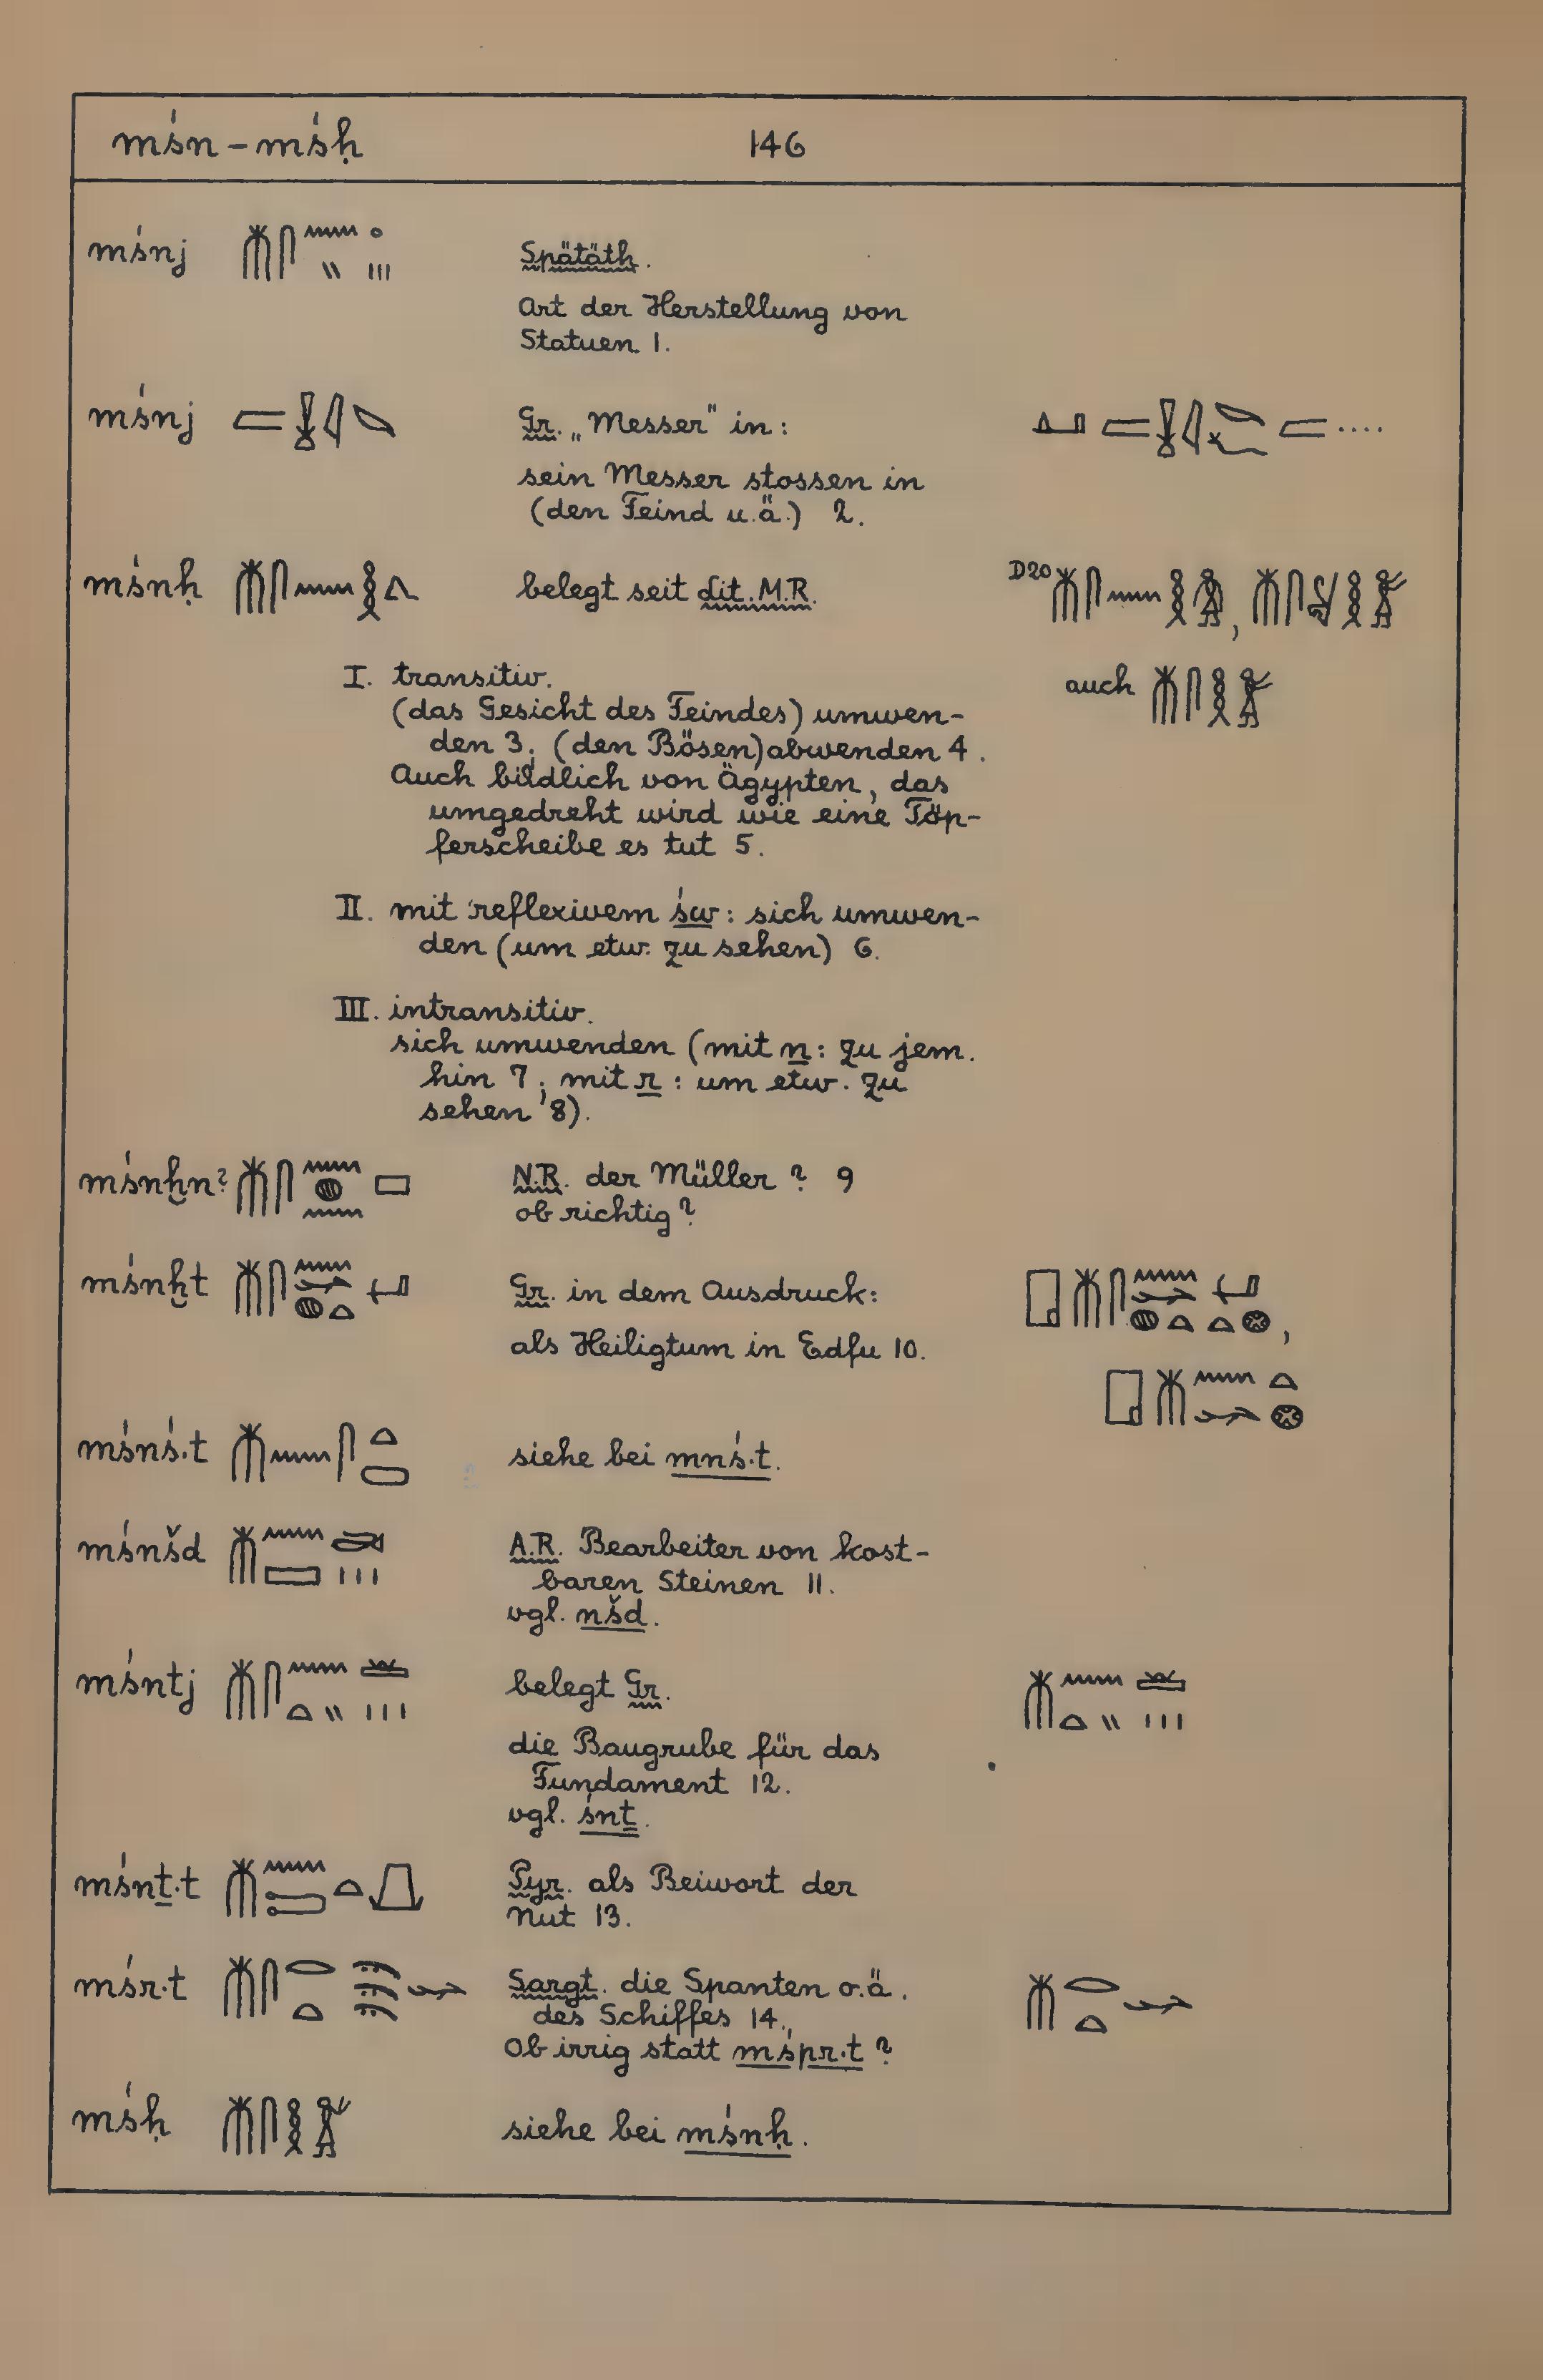 mśn – mśḥ 146
mśnj Spätäth.
Art der Herstellung von
Statuen 1.
mśnj Gr. „Messer" in:
sein Messer stossen in
(den Feind u.ä.) 2.
mśnḥ belegt seit Lit. M.R. D20
auch
I. transitiv.
(das Gesicht des Feindes) umwen-
den 3; (den Bösen) abwenden 4.
Auch bildlich von Ägypten, das
umgedreht wird wie eine Töp-
ferscheibe es tut 5.
II. mit reflexivem św: sich umwen-
den (um etw. zu sehen) 6.
III. intransitiv.
sich umwenden (mit n: zu jem.
hin 7; mit r: um etw. zu
sehen 8).
mśnḫn? N.R. der Müller? 9
ob richtig?
mśnḫt Gr. in dem Ausdruck:
als Heiligtum in Edfu 10.
mśnś.t siehe bei mnś.t.
mśnšd A.R. Bearbeiter von kost-
baren Steinen 11.
vgl. nšd.
mśntj belegt Gr.
die Baugrube für das
Fundament 12.
vgl. śnṯ.
mśnṯ.t Pyr. als Beiwort der
Nut 13.
mśr.t Sargt. die Spanten o.ä.
des Schiffes 14.,
Ob irrig statt mśpr.t?
mśḥ siehe bei mśnḥ.